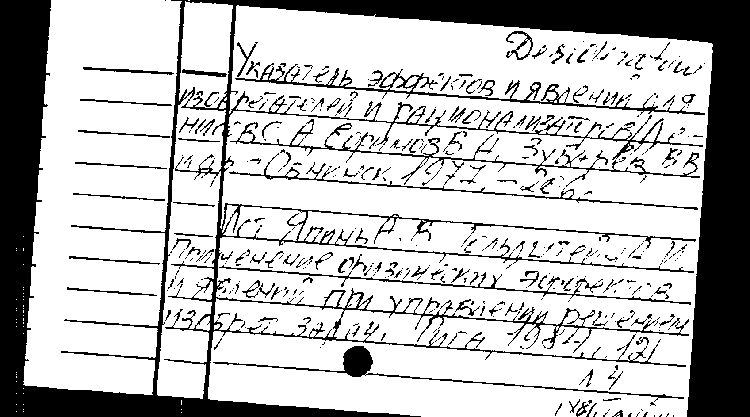 Desideratum
Указатель эффектов и явлений для
изобретателей и рационализаторов/Де-
нисов С. А., Ефимов В. А., Зубарев В В
и др. - Обнинск, 1977. - 206 с
Ист Япинь А. В., Гольдштейн А. И.
Применение физических эффектов
и явлений при управлении решением
изобрет. задач. Рига, 1984, с. 121
л 4